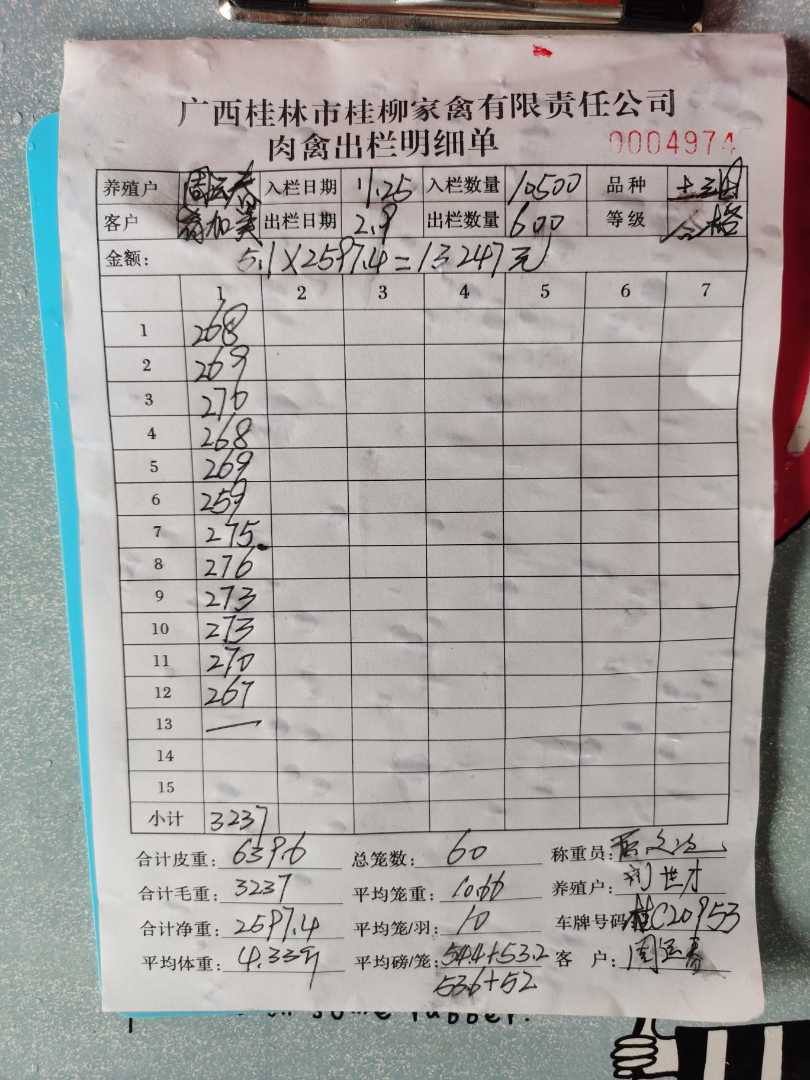 广西桂林市桂柳家禽有限责任公司
肉禽出栏明细单 0004974
养殖户 入栏日期 11.25 入栏数量 10500 品种
客户 出栏日期 2.9 出栏数量 600 等级 合格
金额: 5.1×2597.4=13247元
1 2 3 4 5 6 7
1 268
2 269
3 270
4 268
5 269
6 259
7 275
8 276
9 273
10 273
11 270
12 267
13 —
14
15
小计 3237
合计皮重: 639.6 总笼数: 60 称重员:
合计毛重: 3237 平均笼重: 10.66 养殖户: 刘世才
合计净重: 2597.4 平均笼/羽: 10 车牌号码: 桂C20953
平均体重: 4.339 平均磅/笼: 544+53.2 客 户:
536+52
on some rubber.